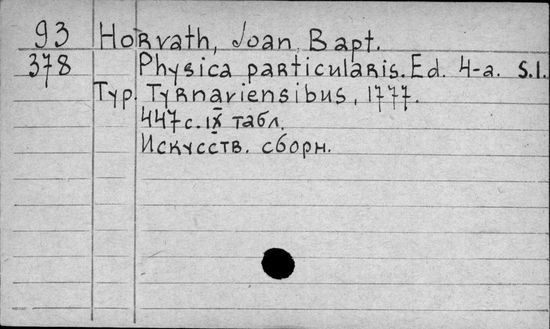 93 Horvath, Joan Bapt.
378 Physica particularis. Ed. 4-a. S.l.
Typ. Tyrnaviensibus, 1777.
447 с. IX табл.
Искусств. сборн.